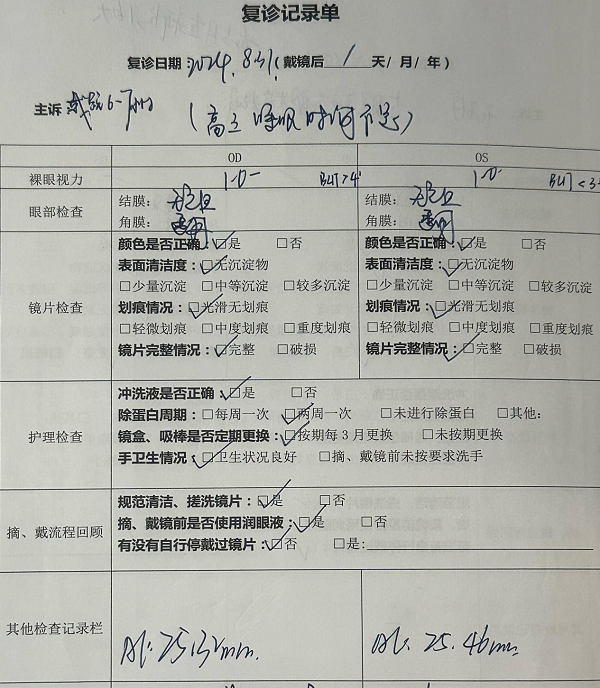 复诊记录单
复诊日期：2024.8.31（戴镜后 1 天/ 月/ 年）
主诉 戴镜6-7
（高三 睡眠时间不足）
OD OS
裸眼视力 1.0- BUT>4" 1.0- BUT<3
眼部检查 结膜：无充血 结膜：无充血
角膜：透明 角膜：透明
镜片检查 颜色是否正确：☑是 □否 颜色是否正确：☑是 □否
表面清洁度：☑无沉淀物 表面清洁度：☑无沉淀物
□少量沉淀 □中等沉淀 □较多沉淀 □少量沉淀 □中等沉淀 □较多沉淀
划痕情况：☑光滑无划痕 划痕情况：☑光滑无划痕
□轻微划痕 □中度划痕 □重度划痕 □轻微划痕 □中度划痕 □重度划痕
镜片完整情况：☑完整 □破损 镜片完整情况：☑完整 □破损
护理检查 冲洗液是否正确：☑是 □否
除蛋白周期：□每周一次 ☑两周一次 □未进行除蛋白 □其他：
镜盒、吸棒是否定期更换：☑按期每 3 月更换 □未按期更换
手卫生情况：☑卫生状况良好 □摘、戴镜前未按要求洗手
摘、戴流程回顾 规范清洁、搓洗镜片：☑是 □否
摘、戴镜前是否使用润眼液：☑是 □否
有没有自行停戴过镜片：☑否 □是：
其他检查记录栏 AL: 25.32mm. AL: 25.46mm.